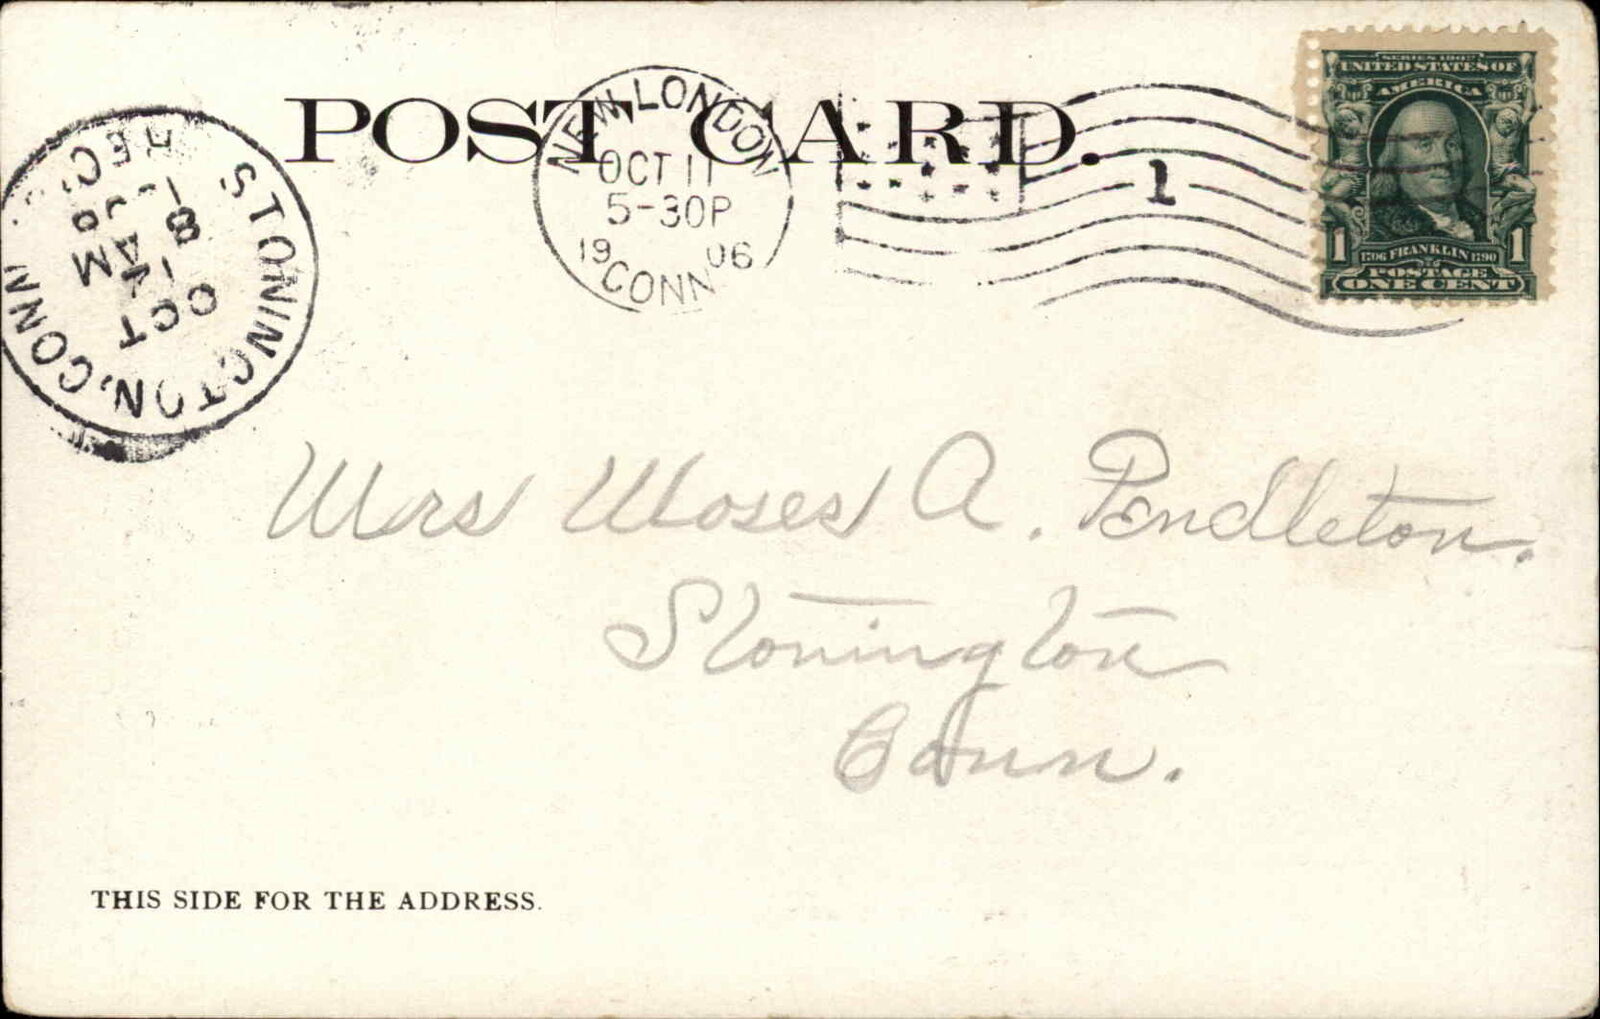 POST CARD.
NEW LONDON
OCT 11
5-30P
19 06
CONN
1
SERIES 1902
UNITED STATES OF
AMERICA
1 1706 FRANKLIN 1790 1
POSTAGE
ONE CENT
STONINGTON, CONN.
REC'D.
OCT
AM
8
Mrs Moses A. Pendleton.
Stonington
Conn.
THIS SIDE FOR THE ADDRESS.